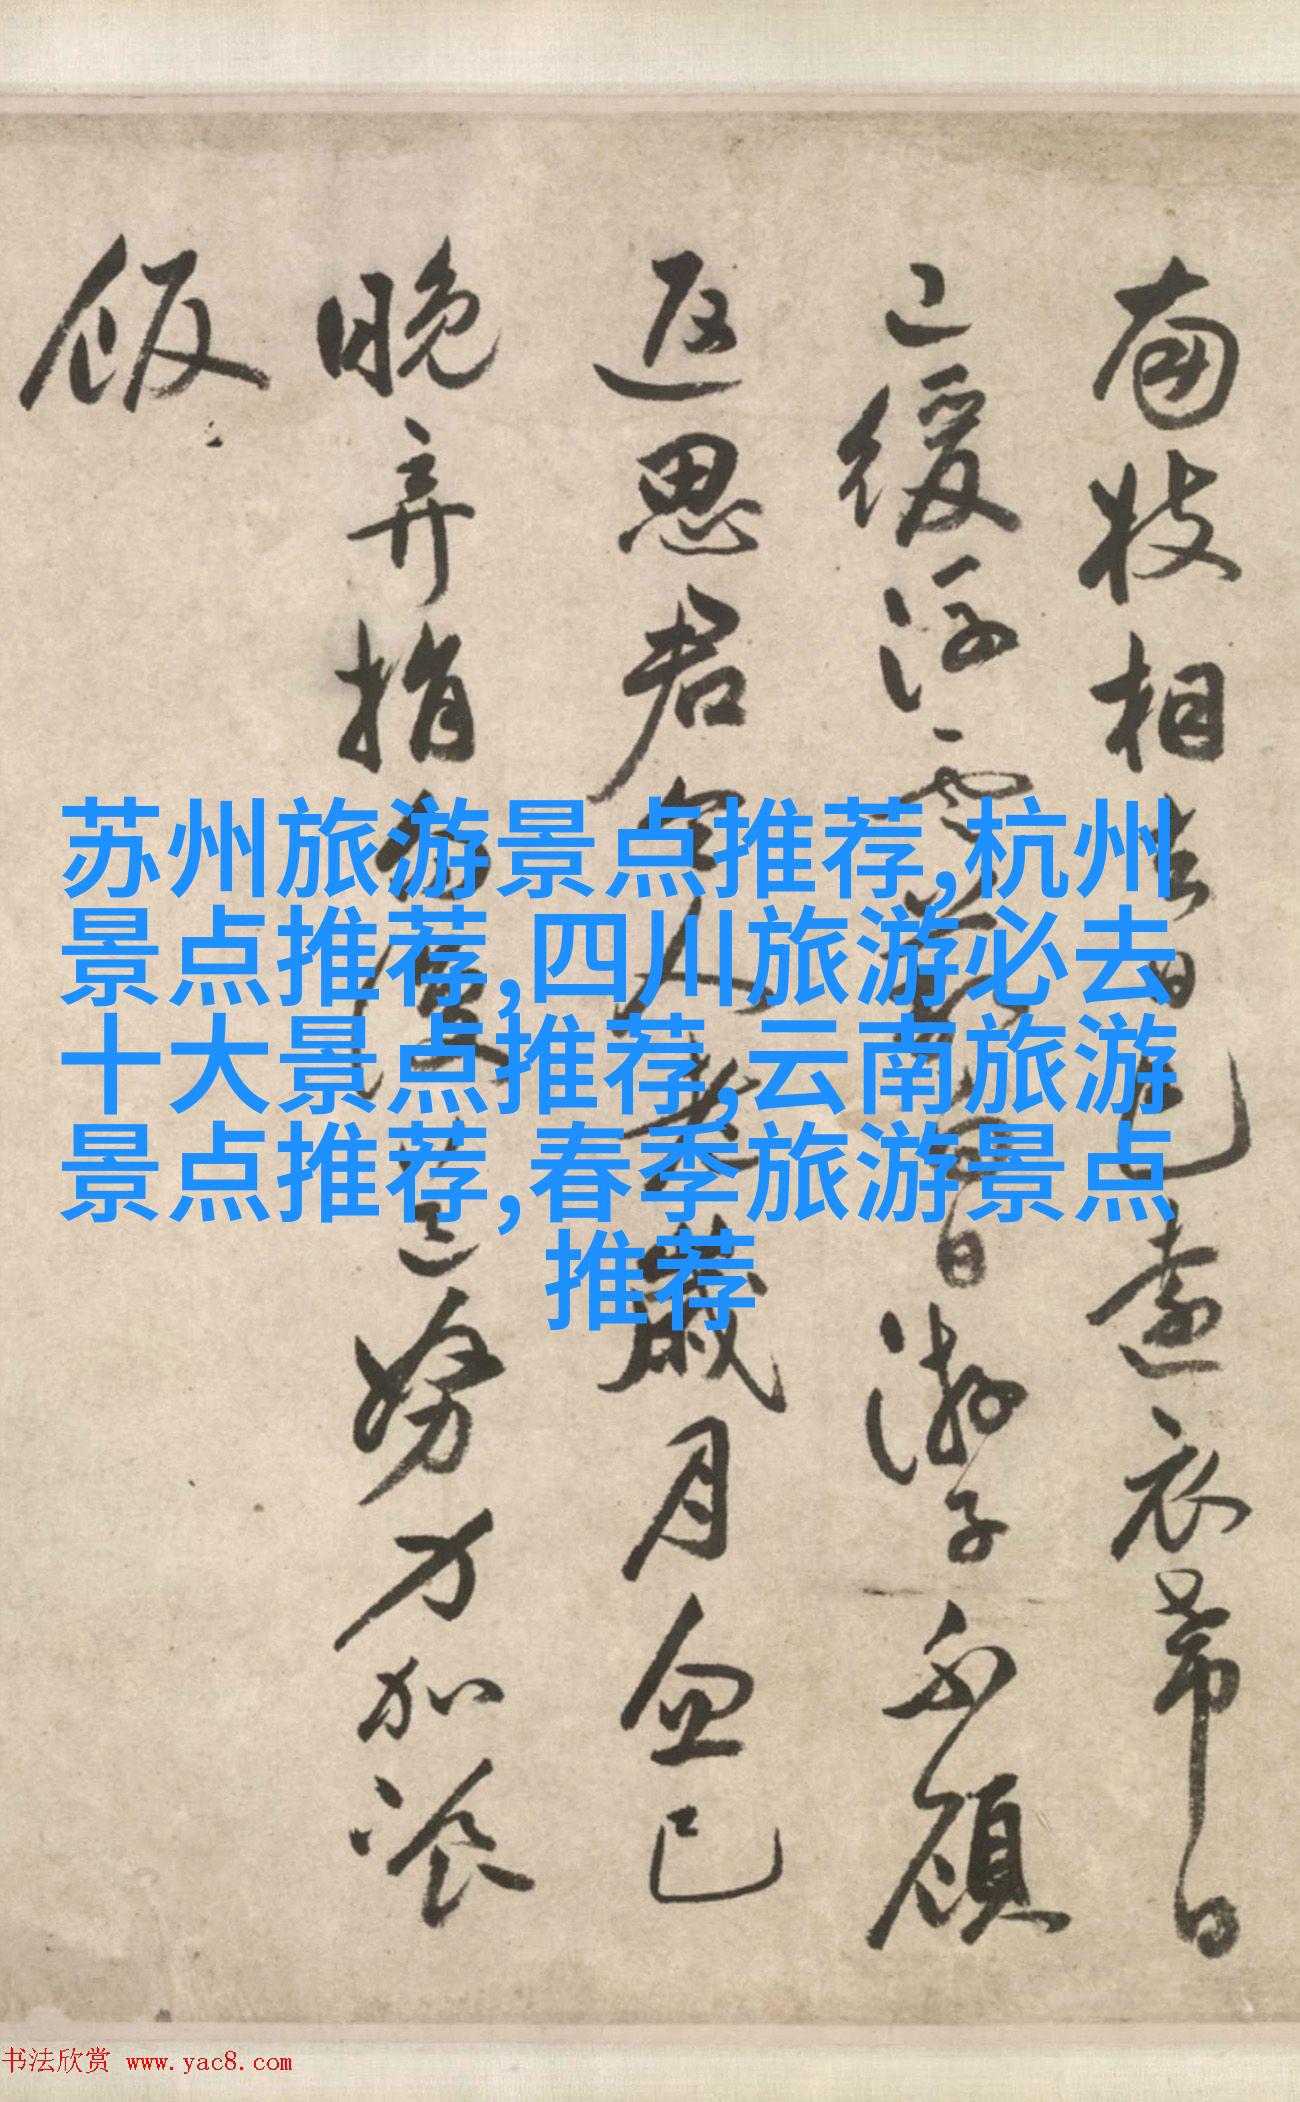 南枝相去日已遠衣帶日
已緩浮雲蔽白日游子不顧
返思君令人老歲月忽已
晚弃捐勿復道努力加飡
飯
苏州旅游景点推荐,杭州
景点推荐,四川旅游必去
十大景点推荐,云南旅游
景点推荐,春季旅游景点
推荐
书法欣赏 www.yac8.com